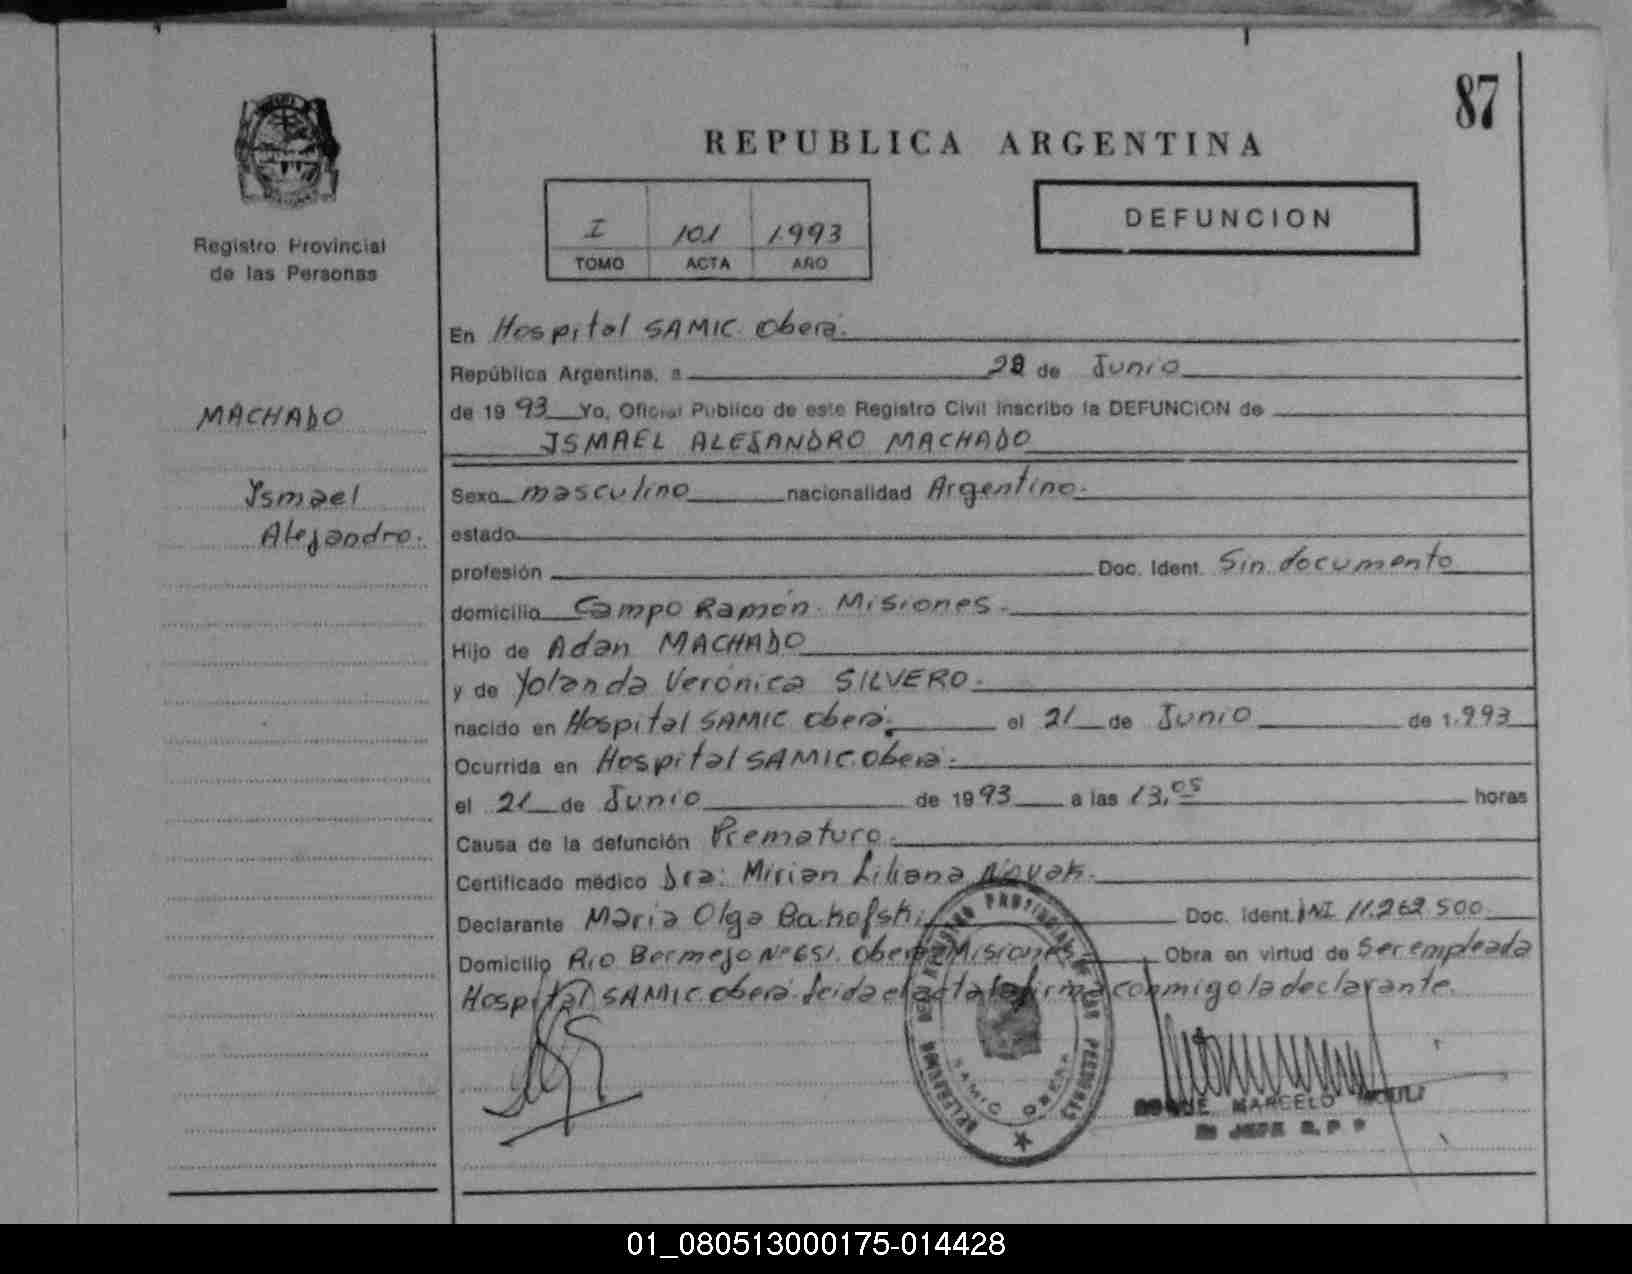 87
REPUBLICA ARGENTINA
I 101 1.993
TOMO ACTA AÑO
DEFUNCION
Registro Provincial
de las Personas
MACHADO
Ismael
Alejandro.
En Hospital SAMIC. Oberá.
República Argentina, a 28 de Junio
de 1993 Yo, Oficial Público de este Registro Civil inscribo la DEFUNCION de
ISMAEL ALEJANDRO MACHADO
Sexo masculino nacionalidad Argentino.
estado
profesión Doc. Ident. Sin documento
domicilio Campo Ramón. Misiones.
Hijo de Adan MACHADO
y de Yolanda Verónica SILVERO.
nacido en Hospital SAMIC Oberá. el 21 de Junio de 1.993
Ocurrida en Hospital SAMIC. Oberá.
el 21 de Junio de 1993 a las 13,05 horas
Causa de la defunción Prematuro.
Certificado médico Dra: Mirian Liliana Novak.
Declarante Maria Olga Bakofski Doc. Ident. DNI 11.262.500
Domicilio Rio Bermejo Nº 651. Oberá Misiones Obra en virtud de Ser empleada
Hospital SAMIC. Oberá. Leida el acta la firma conmigo la declarante.
DELEGACION REGISTRO PROVINCIAL DE LAS PERSONAS
SAMIC OBERA
MARCELO
JEFE R. P. P
01_080513000175-014428